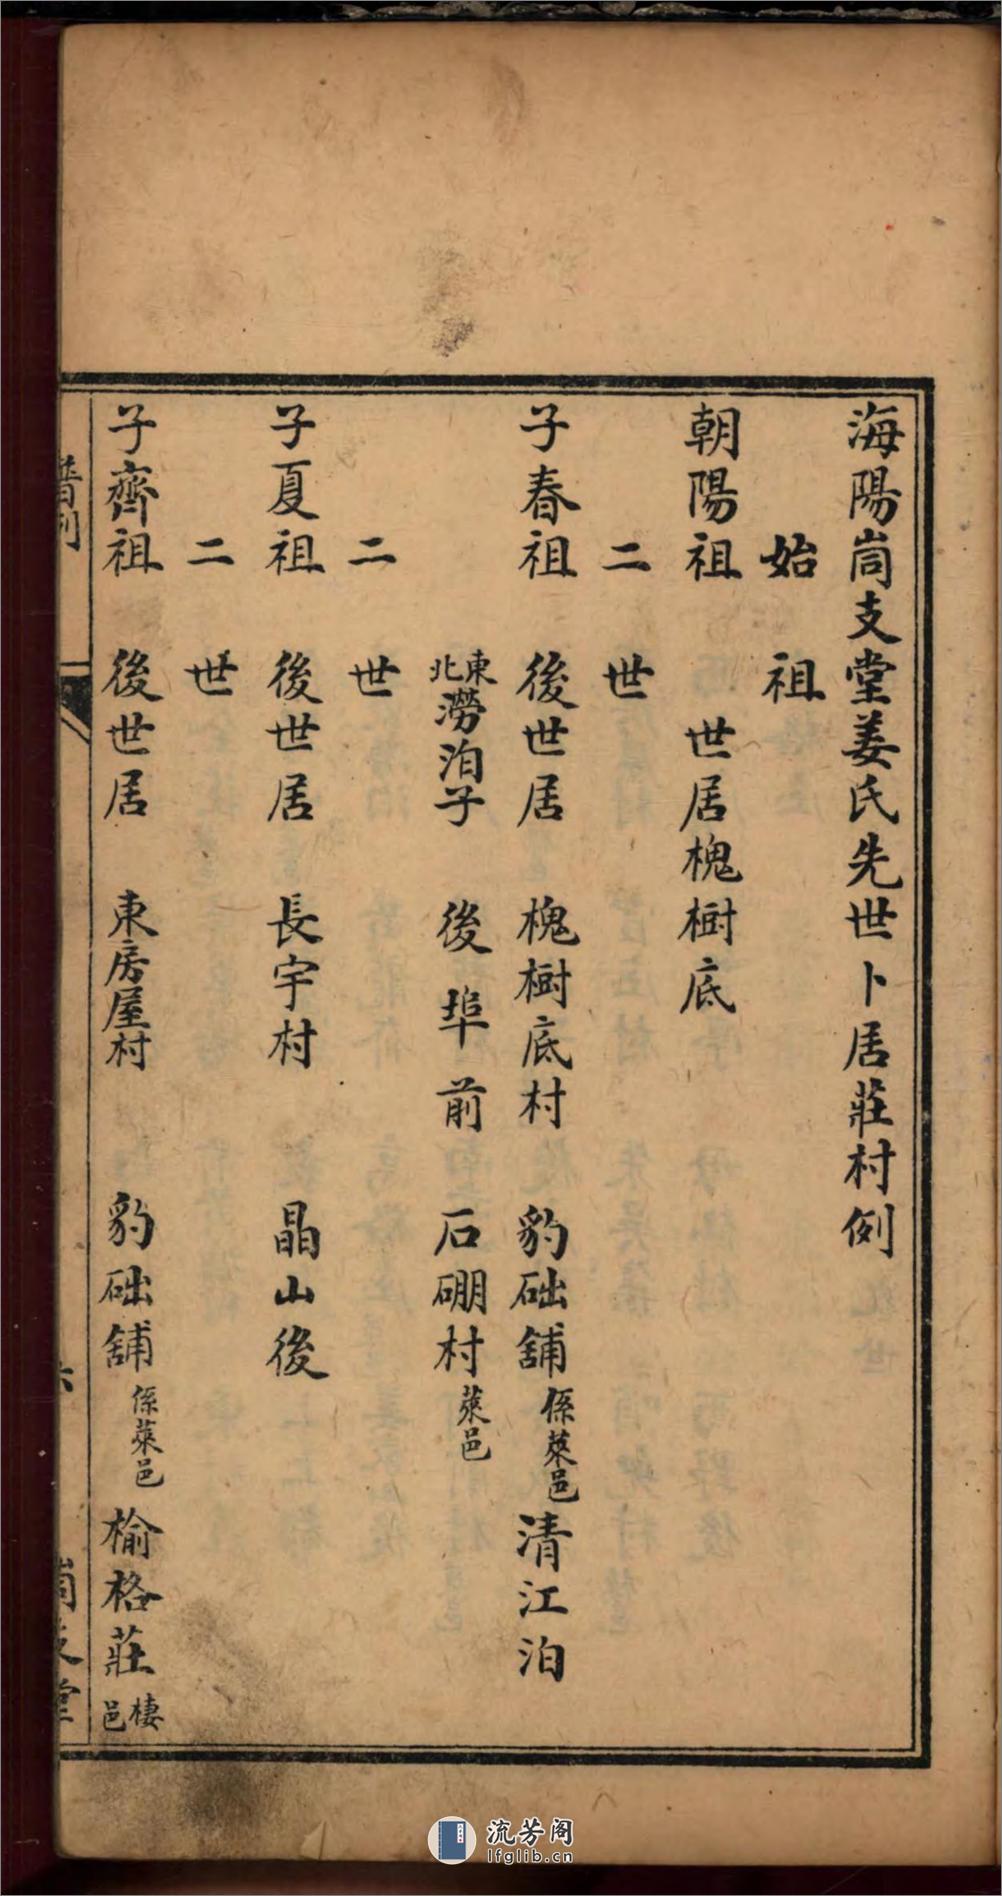 海陽峝支堂姜氏先世卜居莊村例
始祖
朝陽祖 世居槐樹底
二世
子春祖 後世居 槐樹底村 豹础舖 係萊邑 清江泊
東北澇泊子 後埠前 石硼村 萊邑
二世
子夏祖 後世居 長宇村 晶山後
二世
子齊祖 後世居 東房屋村 豹础舖 係萊邑 榆格莊 棲邑
流芳阁
lfglib.cn